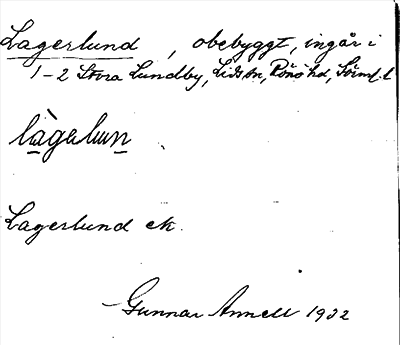 Lagerlund, obebyggt, ingår i
1-2 Stora Lundby, Lids sn, Rönö hd, Sörml. l
làgəlɯn
Lagerlund ek.
Gunnar Annell 1932